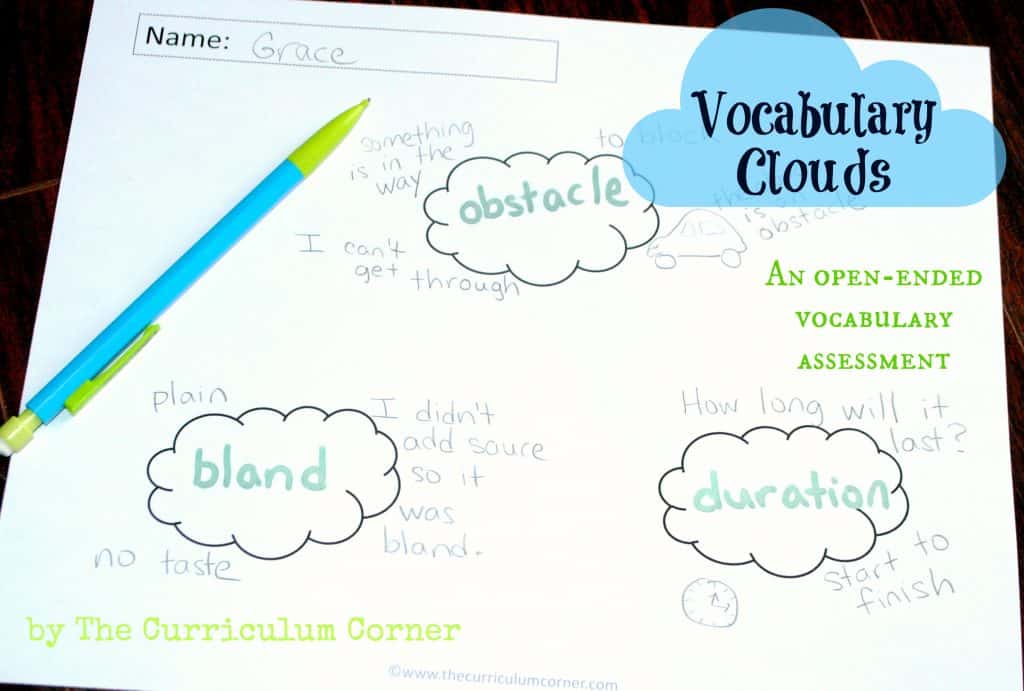 Name: Grace
Vocabulary
Clouds
something
is in the
way
to block
obstacle
is
obstacle
I can't
get through
An open-ended
vocabulary
assessment
plain
bland
I didn't
add sauce
so it
was
bland.
no taste
How long will it
last?
duration
start to
finish
by The Curriculum Corner
©www.thecurriculumcorner.com